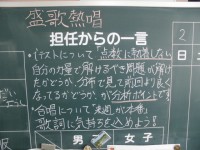 盛歌熱唱
担任からの一言
・テストについて 点数に執着しない
自分の力量で解けるべき問題が解け
たかどうか、分布で見て前回より良く
なってるかどうか、が分析ポイントです
・合唱について「来週が本番」
歌詞に気持ちを込めよう!!
男 女子
2
日